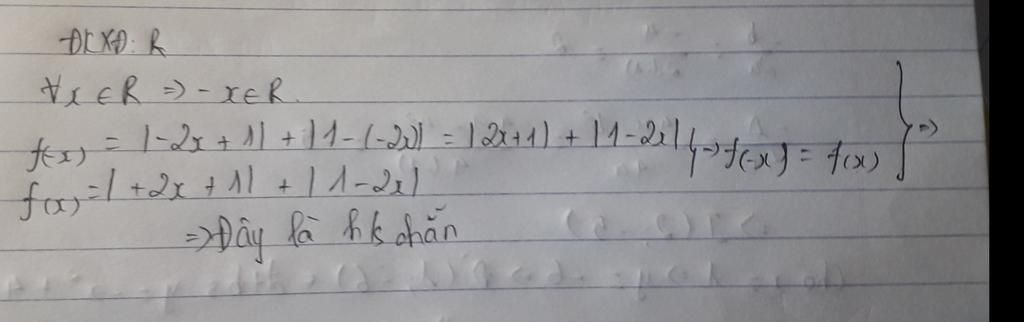 ĐKXĐ: R
∀x ∈ R => -x ∈ R.
f(-x) = |-2x + 1| + |1 - (-2x)| = |2x+1| + |1-2x| } => f(-x) = f(x) } =>
f(x) = |+2x + 1| + |1 - 2x|
=> Đây là hs chẵn